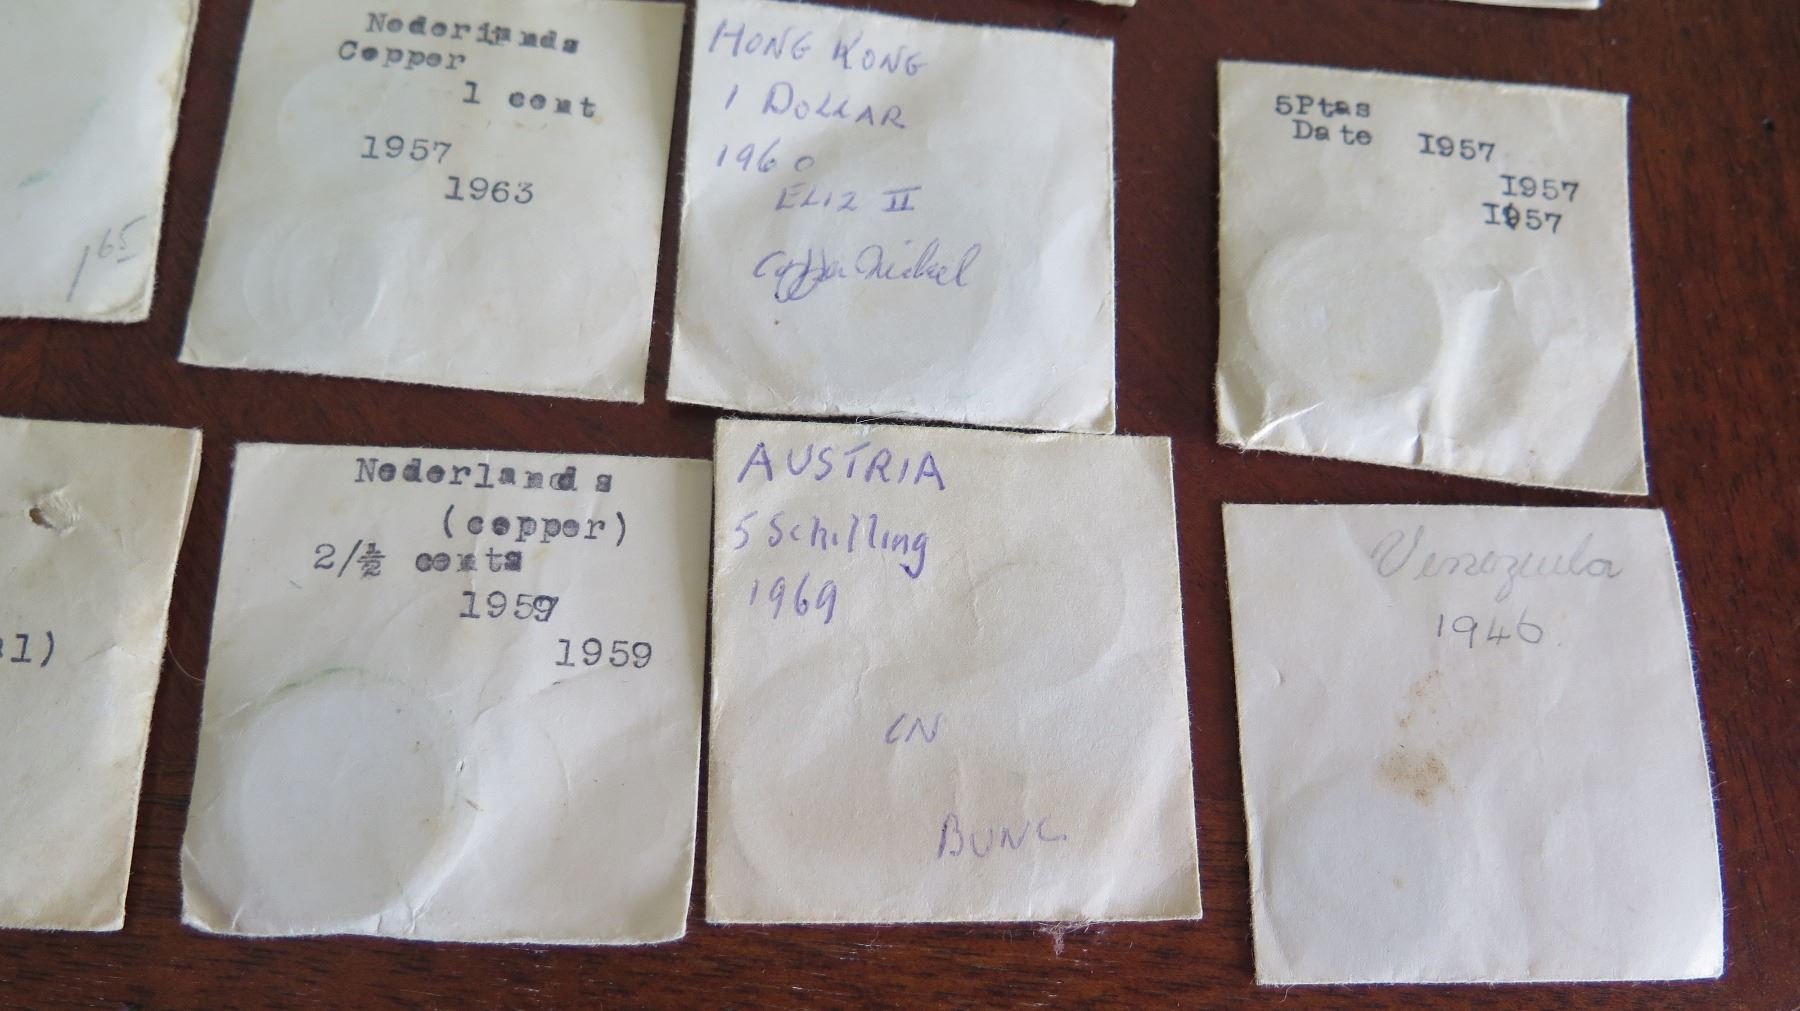 1 65
Nederlands
Copper
1 cent
1957
1963
HONG KONG
1 DOLLAR
1960
ELIZ II
Copper Nickel
5Ptas
Date I957
I957
I957
al)
Nederlands
(copper)
2/½ cents
1959
1959
AUSTRIA
5 Schilling
1969
CN
BUNC
Venezuela
1946.